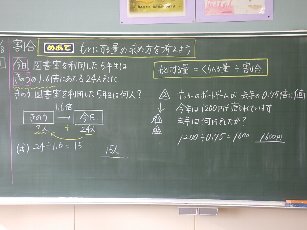 割合 めあて もとにする量の求め方を考えよう
今日図書室を利用した5年生は
きのうの1.6倍にあたる24人でした
きのう図書室を利用した5年生は何人？
1.6倍
きのう → 今日
□人 24人
(式) 24÷1.6=15
15人
もとにする量＝くらべる量÷割合
今年は1200円で売られています
去年は何円でしたか？
1200÷0.75=1600 1600円